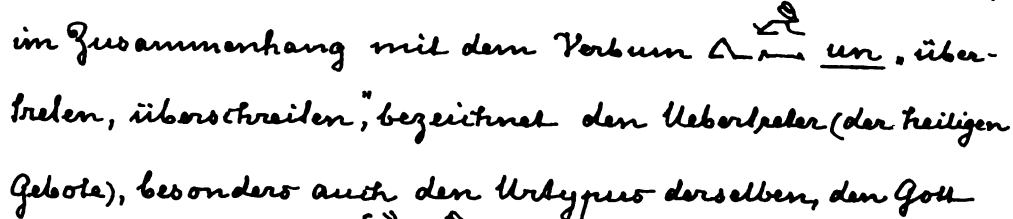 im Zusammenhang mit dem Verbum un „über-
treten, überschreiten", bezeichnet den Uebertreter (der heiligen
Gebote), besonders auch den Urtypus derselben, den Gott